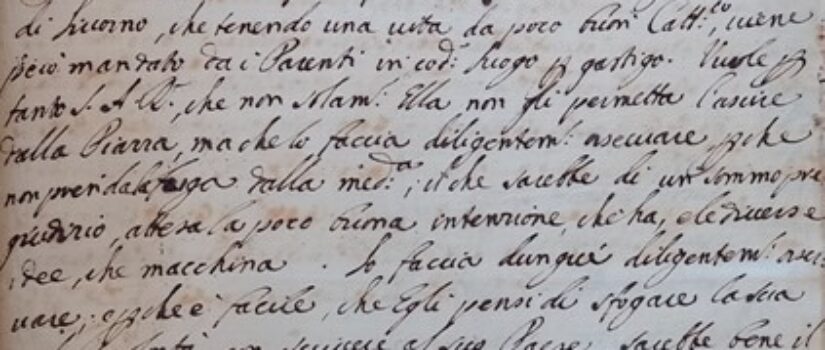 di Livorno, che tenendo una vita da poco buon Catt:co, viene
però mandato da i Parenti in cod:o luogo p gastigo. Vuole p
tanto S. A. R., che non solam:e Ella non gli permetta l'ascire
dalla Piazza, ma che lo faccia diligentem:e osservare, pche
non prenda la fuga dalla med:a; il che sarebbe di un sommo pre
giudizio, attesa la poco buona intenzione, che ha, e le diverse
idee, che macchina. Lo faccia dunque diligentem:e osser:
vare; e pche è facile, che Egli pensi di sfogare la sua
con scrivere al suo Paese, sarebbe bene il